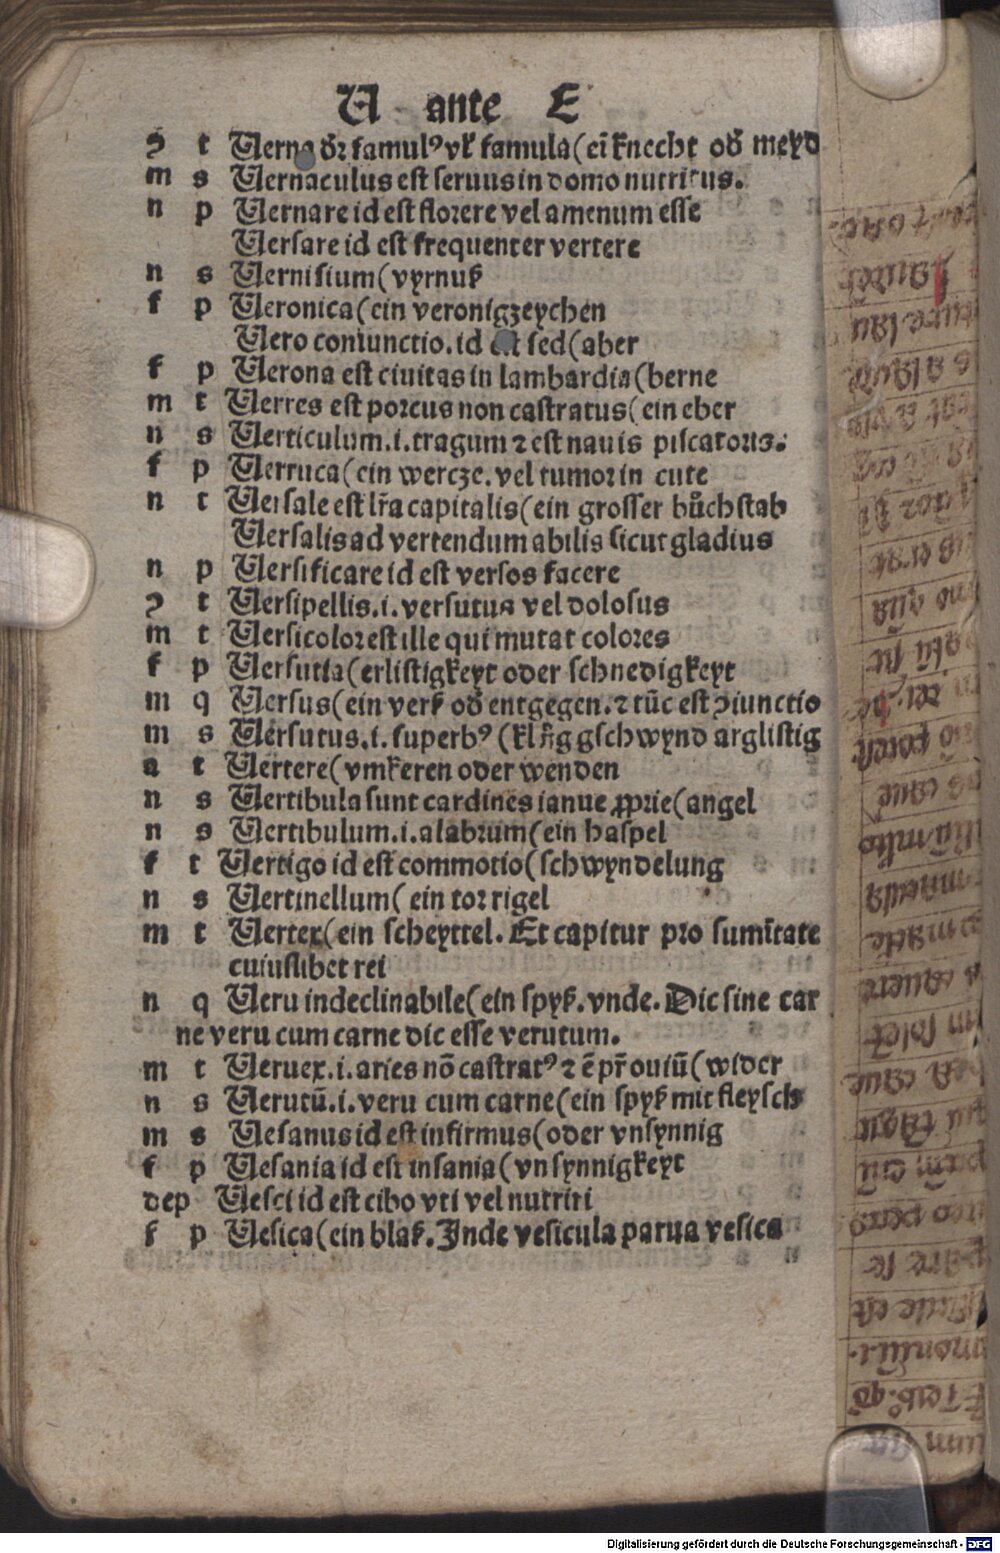 U ante E
ꝯ t Uerna dr̄ famulꝰ vl̓ famula (ei knecht od̓ meyd
m s Uernaculus est seruus in domo nutritus.
n p Uernare id est florere vel amenum esse
Uersare id est frequenter vertere
n s Uernisium (vyrnuß
f p Ueronica (ein veronigzeychen
Uero coniunctio. id est sed (aber
f p Uerona est ciuitas in lambardia (berne
m t Uerres est porcus non castratus (ein eber
n s Uerticulum .i. tragum ⁊ est nauis piscatoris.
f p Uerruca (ein wercze. vel tumor in cute
n t Uersale est lr̄a capitalis (ein grosser bůchstab
Uersalis ad vertendum abilis sicut gladius
n p Uersificare id est versos facere
ꝯ t Uersipellis .i. versutus vel dolosus
m t Uersicolor est ille qui mutat colores
f p Uersutia (erlistigkeyt oder schnedigkeyt
m q Uersus (ein verß od̓ entgegen. ⁊ tūc est ꝯiunctio
m s Uersutus .i. superbꝰ (klūg gschwynd arglistig
a t Uertere (vmkeren oder wenden
n s Uertibula sunt cardines ianue ꝓprie (angel
n s Uertibulum .i. alabrum (ein haspel
f t Uertigo id est commotio (schwyndelung
n s Uertinellum (ein tor rigel
m t Uertex (ein scheyttel. Et capitur pro sumītate
cuiuslibet rei
n q Ueru indeclinabile (ein spyß. vnde. Dic sine car
ne veru cum carne dic esse verutum.
m t Ueruex .i. aries nō castratꝰ ⁊ ē pr̄ ouiū (wider
n s Uerutū .i. veru cum carne (ein spyß mit fleysch
m s Uesanus id est infirmus (oder vnsynnig
f p Uesania id est insania (vnsynnigkeyt
dep Uesci id est cibo vti vel nutriri
f p Uesica (ein blaß. Inde vesicula parua vesica
Digitalisierung gefördert durch die Deutsche Forschungsgemeinschaft - DFG